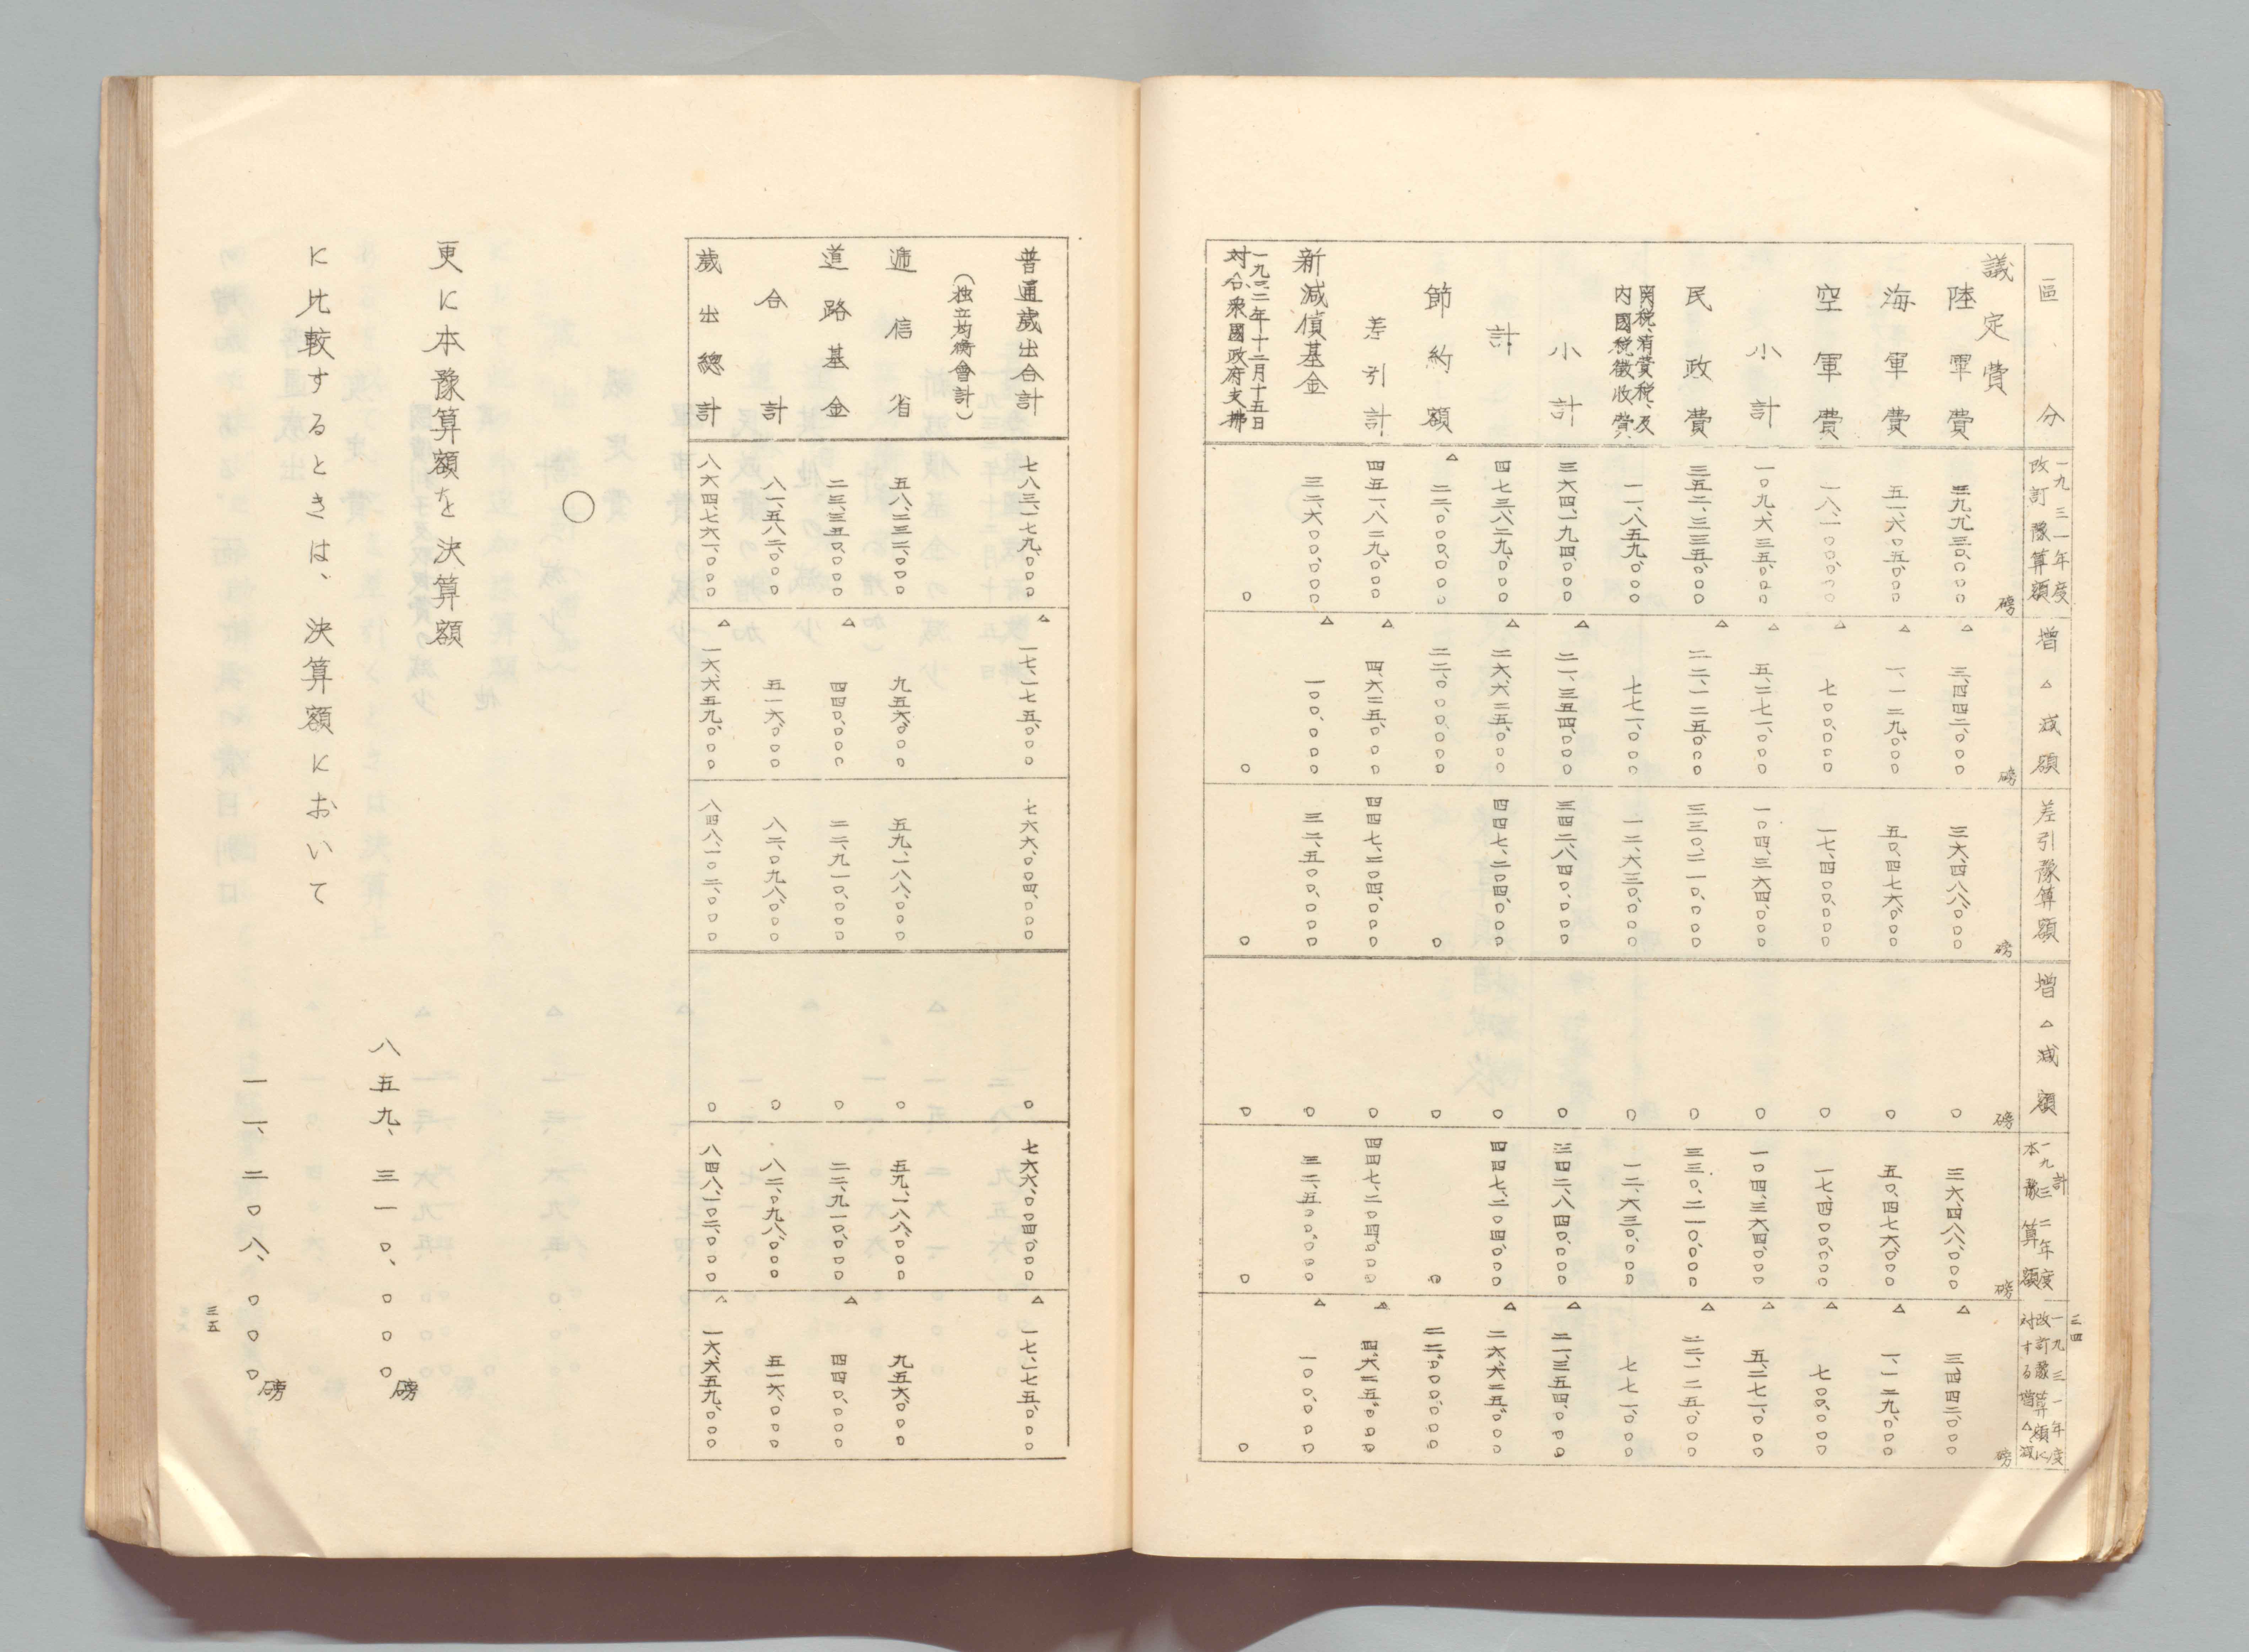 三四
區分 一九三一年度改訂豫算額 增△減額 差引豫算額 增△減額 計一九三二年度本豫算額 一九三一年度改訂豫算額に対する增△減
議定費 磅 磅 磅 磅 磅 磅
陸軍費 三九、九三〇、〇〇〇 △三、四四二、〇〇〇 三六、四八八、〇〇〇 〇 三六、四八八、〇〇〇 △三、四四二、〇〇〇
海軍費 五一、六〇五、〇〇〇 △一、一二九、〇〇〇 五〇、四七六、〇〇〇 〇 五〇、四七六、〇〇〇 △一、一二九、〇〇〇
空軍費 一八、一〇〇、〇〇〇 △七〇〇、〇〇〇 一七、四〇〇、〇〇〇 〇 一七、四〇〇、〇〇〇 △七〇〇、〇〇〇
小計 一〇九、六三五、〇〇〇 △五、二七一、〇〇〇 一〇四、三六四、〇〇〇 〇 一〇四、三六四、〇〇〇 △五、二七一、〇〇〇
民政費 三五二、三三五、〇〇〇 △二二、一二五、〇〇〇 三三〇、二一〇、〇〇〇 〇 三三〇、二一〇、〇〇〇 △二二、一二五、〇〇〇
関税、消費税、及内國税徴收費 一一、八五九、〇〇〇 七七一、〇〇〇 一二、六三〇、〇〇〇 〇 一二、六三〇、〇〇〇 七七一、〇〇〇
小計 三六四、一九四、〇〇〇 △二一、三五四、〇〇〇 三四二、八四〇、〇〇〇 〇 三四二、八四〇、〇〇〇 △二一、三五四、〇〇〇
計 四七三、八二九、〇〇〇 △二六、六二五、〇〇〇 四四七、二〇四、〇〇〇 〇 四四七、二〇四、〇〇〇 △二六、六二五、〇〇〇
節約額 △二二、〇〇〇、〇〇〇 二二、〇〇〇、〇〇〇 〇 〇 〇 二二、〇〇〇、〇〇〇
差引計 四五一、八二九、〇〇〇 △四、六二五、〇〇〇 四四七、二〇四、〇〇〇 〇 四四七、二〇四、〇〇〇 △四、六二五、〇〇〇
新減債基金 三二、六〇〇、〇〇〇 △一〇〇、〇〇〇 三二、五〇〇、〇〇〇 〇 三二、五〇〇、〇〇〇 △一〇〇、〇〇〇
一九三二年十二月十五日対合衆國政府支拂 〇 〇 〇 〇 〇 〇
普通歳出合計 七八三、一七九、〇〇〇 △一七、一七五、〇〇〇 七六六、〇〇四、〇〇〇 〇 七六六、〇〇四、〇〇〇 △一七、一七五、〇〇〇
（独立均衡會計）
逓信省 五八、二三二、〇〇〇 九五六、〇〇〇 五九、一八八、〇〇〇 〇 五九、一八八、〇〇〇 九五六、〇〇〇
道路基金 二三、三五〇、〇〇〇 △四四〇、〇〇〇 二二、九一〇、〇〇〇 〇 二二、九一〇、〇〇〇 △四四〇、〇〇〇
合計 八一、五八二、〇〇〇 五一六、〇〇〇 八二、〇九八、〇〇〇 〇 八二、〇九八、〇〇〇 五一六、〇〇〇
歳出總計 八六四、七六一、〇〇〇 △一六、六五九、〇〇〇 八四八、一〇二、〇〇〇 〇 八四八、一〇二、〇〇〇 △一六、六五九、〇〇〇
〇
更に本豫算額を決算額
八五九、三一〇、〇〇〇磅
に比較するときは、決算額において
一一、二〇八、〇〇〇磅
三五